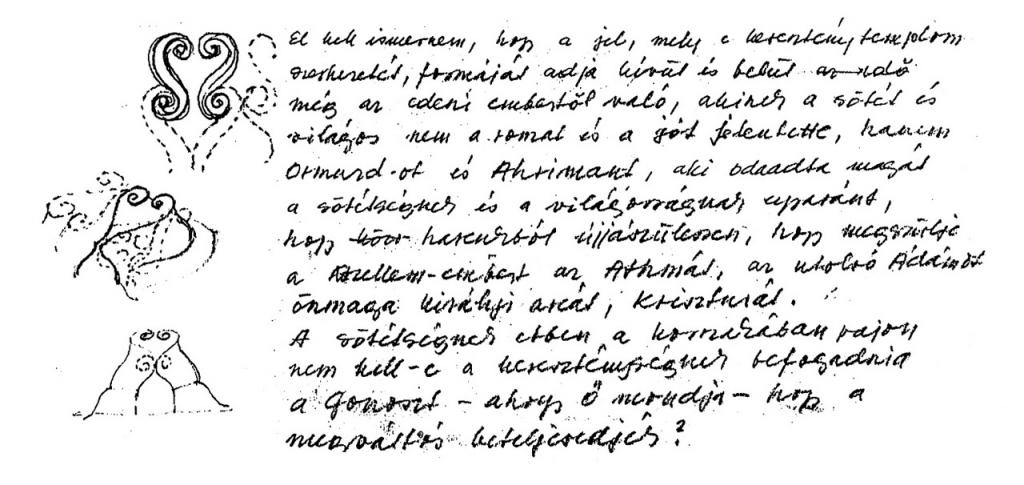 El kell ismernem, hogy a jel, mely e keresztény templom
szerkezetét, formáját adja kívül és belül az idő
még az edeni embertől való, akinek a sötét és
világos nem a romat és a jót jelentette, hanem
Ormuzd-ot és Ahrimant, aki odaadta magát
a sötétségnek és a világosságnak egyaránt,
hogy harcukból újjászülessen, hogy megszülje
a Szellem-embert az Athmát, az utolsó Ádámot
önmaga királyi arcát, Krisztusát.
A sötétségnek ebben a korszakában vajon
nem kell-e a kereszténységnek befogadnia
a Gonoszt - ahogy Ő mondja - hogy a
megváltás beteljesedjék?